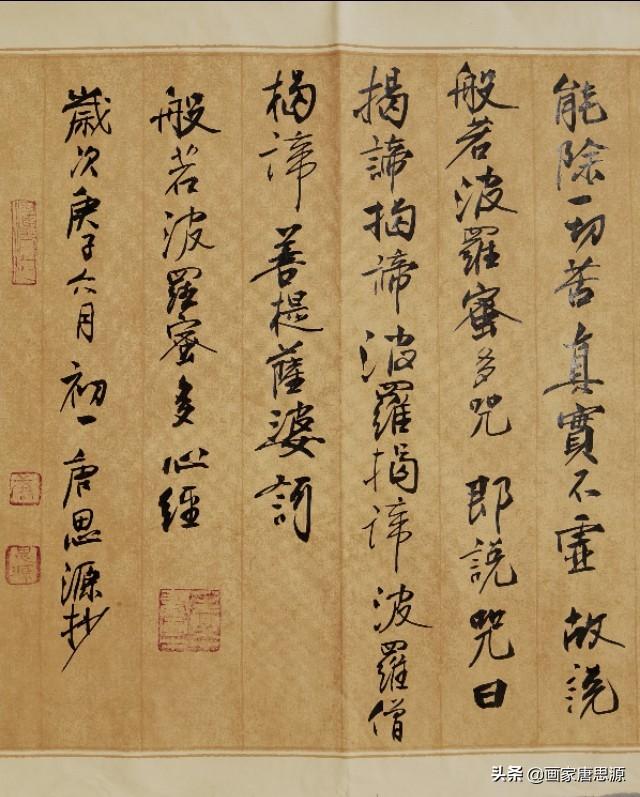 能除一切苦真實不虛故說
般若波羅蜜多咒即說咒曰
揭諦揭諦波羅揭諦波羅僧
揭諦菩提薩婆訶
般若波羅蜜多心經
歲次庚子六月初一唐思源抄
思源
头条@画家唐思源